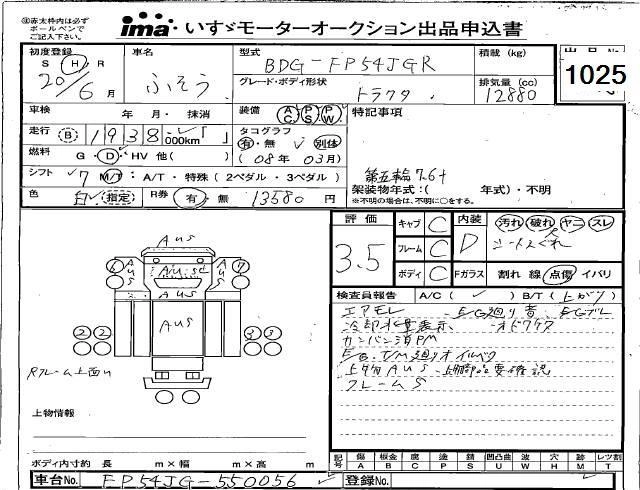 ※赤太枠内は必ず
ボールペンで
ご記入下さい。
ima いすゞモーターオークション出品申込書
初度登録 車名 型式 積載(kg) 出品No.
S H R ふそう BDG-FP54JGR 1025
20/6月 グレード・ボディ形状 トラクタ 排気量(cc) 12880
車検 年 月・抹消 装備 AC PS PW 特記事項
走行 B 1938 000km タコグラフ
有・無 別体
燃料 G・D・HV 他( ) (08年03月)
シフト 7 M/T・A/T・特殊(2ペダル・3ペダル) 第五輪7.6t
架装物年式:( 年式)・不明
※不明の場合は、不明に○をする。
色 白 指定 R券 有・無 13580円
評価 3.5 キャブ C 内装 D 汚れ 破れ ヤニ スレ
フレーム C
ボディ C Fガラス 割れ 線 点傷 イバリ
検査員報告 A/C( ) B/T(上がり)
エアモレ E/G廻り音
冷却水量表示
カンバン消PM
E/G.T/M廻りオイル
上物AUS 要確認
フレームS
AUS
AUS
AUS
AUS
AUS
AUS
2 2 3 3
Rフレーム上面
上物情報
ボディ内寸約 長 m×幅 m×高 m
記号 傷A 板金B 腐C 塗P 錆S 凹凸曲U 波W 穴H 跡M レツ割T
車台No. FP54JG-550056 登録No.